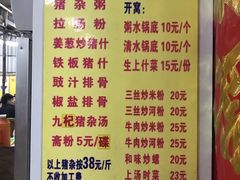 猪杂粥
拉汤粉
姜葱炒猪什
铁板猪什
豉汁排骨
椒盐排骨
九杞猪杂汤
斋粉5元/碟
以上猪杂按38元/斤
不收加工费
开窝:
粥水锅底10元/个
清水锅底10元/个
生上什菜15元/份
三丝炒米粉 20元
三丝炒河粉 20元
牛肉炒米粉 25元
牛肉炒河粉 25元
和味炒螺 20元
上汤时菜 23元